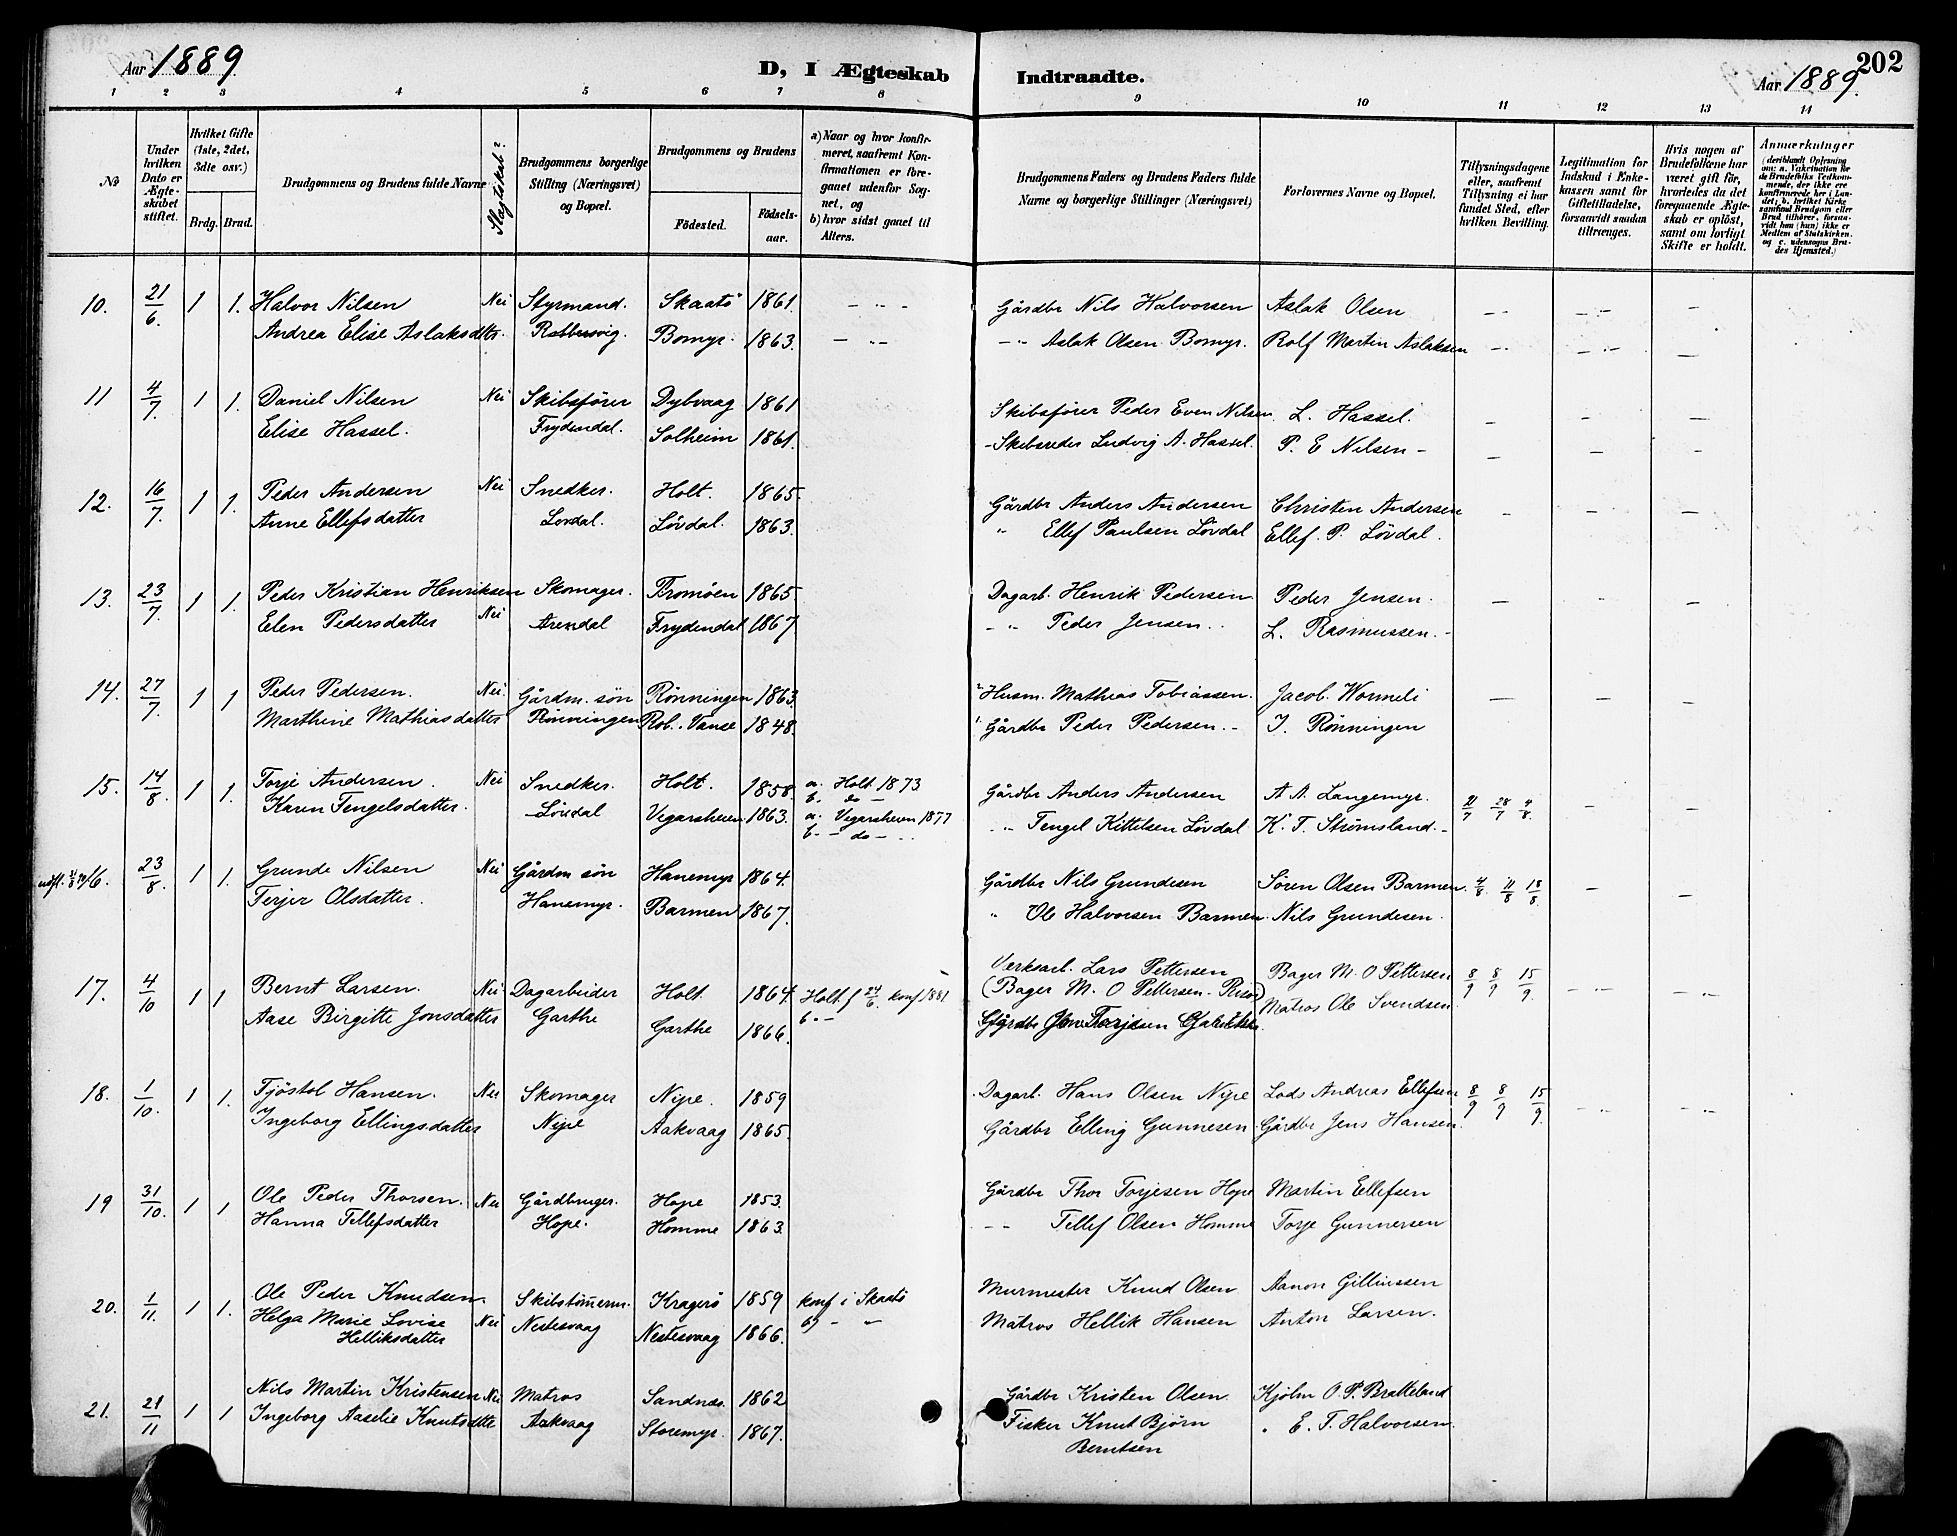 202
Aar 1889
D, I Ægteskab Indtraadte.
Aar 1889.
1 2 3 4 5 6 7 8 9 10 11 12 13 14
№
Under hvilken Dato er Ægteskabet stiftet.
Hvilket Gifte (1ste, 2det, 3die osv.)
Brdg. Brud.
Brudgommens og Brudens fulde Navne
Slagtskab?
Brudgommens borgerlige Stilling (Næringsvei) og Bopæl.
Brudgommens og Brudens
Fødested.
Fødselsaar.
a) Naar og hvor konfirmeret, saafremt Konfirmationen er foregaaet udenfor Sognet, og
b) hvor sidst gaaet til Alters.
Brudgommens Faders og Brudens Faders fulde Navne og borgerlige Stillinger (Næringsvei)
Forlovernes Navne og Bopæl.
Tillysningsdagene eller, saafremt Tillysning ei har fundet Sted, efter hvilken Bevilling.
Legitimation for Indskud i Enkekassen samt for Giftetilladelse, forsaavidt saadan tiltrænges.
Hvis nogen af Brudefolkene har været gift før, hvorledes da det foregaaende Ægteskab er opløst, samt om lovligt Skifte er holdt.
Anmærkninger (deriblandt Oplysning om: a. Vakcination for de Brudefolks Vedkommende, der ikke ere konfirmerede her i Landet; b. hvilket Kirkesamfund Brudgom eller Brud tilhører, forsaavidt han (hun) ikke er Medlem af Statskirken, og c. udensogns Brudes Hjemsted.)
10. 21/6. 1 1. Halvor Nilsen Nei Styrmand. Skaatö 1861. Gårdbr Nils Halvorsen Aslak Olsen
Andrea Elise Aslaksdtr. Bomyr. 1863. Aslak Olsen Bomyr. Rolf Martin Aslaksen
11 4/7. 1 1. Daniel Nilsen Nei Skibsfører Dybvaag 1861 Skibsfører Peder Even Nilsen L. Hassel.
Elise Hassel. Frydendal. Solheim 1861. Skibsreder Ludvig A. Hassel. P. E Nilsen
12. 16/7. 1 1. Peder Andersen Nei Snedker. Holt. 1865. Gårdbr Anders Andersen Christen Andersen
Anne Ellefsdatter Lovdal. Lövdal. 1863. " Ellef Paulsen Lövdal Ellef. P. Lövdal.
13. 23/7. 1 1. Peder Kristian Henriksen Skomager. Tromöen 1865 Dagarb. Henrik Pedersen Peder Jensen.
Elen Pedersdatter Nei Arendal Frydendal 1867. " Peder Jensen. L. Rasmussen.
14. 27/7. 1 1 Peder Pedersen. Nei. Gårdm. sön Rönningen 1863. Husm. Mathias Tobiassen. Jacob. Wormeli
Marthine Mathiasdatter Rönningen Rob. Vanse 1848. Gårdbr Peder Pedersen. J. Rönningen
15. 14/8. 1 1. Torje Andersen. Nei Snedker. Holt. 1858. a. Holt 1873 Gårdbr Anders Andersen A A. Langemyr. 21/7 28/7 4/8.
b. do
Karen Tengelsdatter. Lövdal Vegarsheien 1863. a. Vegarsheien 1877 " Tengel Kittelsen Lövdal K. T. Strömsland.
b. do
16. 23/8. 1 1. Grunde Nilsen Nei Gårdm sön Hanemyr 1864. Gårdbr Nils Grundesen Sören Olsen Barmen. 4/8. 11/8 18/8.
Terjer Olsdatter. Hanemyr. Barmen 1867. " Ole Halvorsen Barmen. Nils Grundesen.
17. 4/10 1 1 Bernt Larsen. Nei Dagarbeider Holt. 1864. Holt f 24/6. konf 1881 Verksarb. Lars Pettersen Bager M. O Pettersen 8/9 8/9 15/9.
(Bager M. O Pettersen. Risör)
Aase Birgitte Jonsdatter Garthe Garthe 1866. Matros Ole Svendsen
18. 1/10. 1 1. Tjöstol Hansen. Nei Skomager Nipe. 1859 Dagarb. Hans Olsen Nipe Lods Andreas Ellefsen 8/9 8/9 15/9.
Ingeborg Ellingsdatter Nipe Aakvaag 1865. Gårdbr Elling Gunnesen. Gårdbr Jens Hansen.
19 31/10. 1 1. Ole Peder Thorsen. Nei Gårdbruger. Hope 1853. Gårdbr Thor Torjesen Hope Martin Ellefsen
Hanna Tellefsdatter Hope. Homme 1863. Tellef Olsen Homme Torje Gunnersen
20. 1/11. 1 1. Ole Peder Knudsen. Skibstömerm. Kragerö 1859 konf i Skaatö Murmester Knud Olsen Aanon Gillinssen
Helga Marie Lovise Nei Nestesvaag Nestesvaag 1866. b) Matros Hellik Hansen Anton Larsen.
Helliksdatter
21. 21/11 1 1 Nils Martin Kristensen Nei Matros Sandnæs. 1862 Gårdbr Kristen Olsen. Kjölm O. P. Bratteland
Ingeborg Aaselie Knutsdtte Aakvaag Storemyr. 1867. Fisker Knut Bjørn " E. T. Halvorsen.
Berntsen